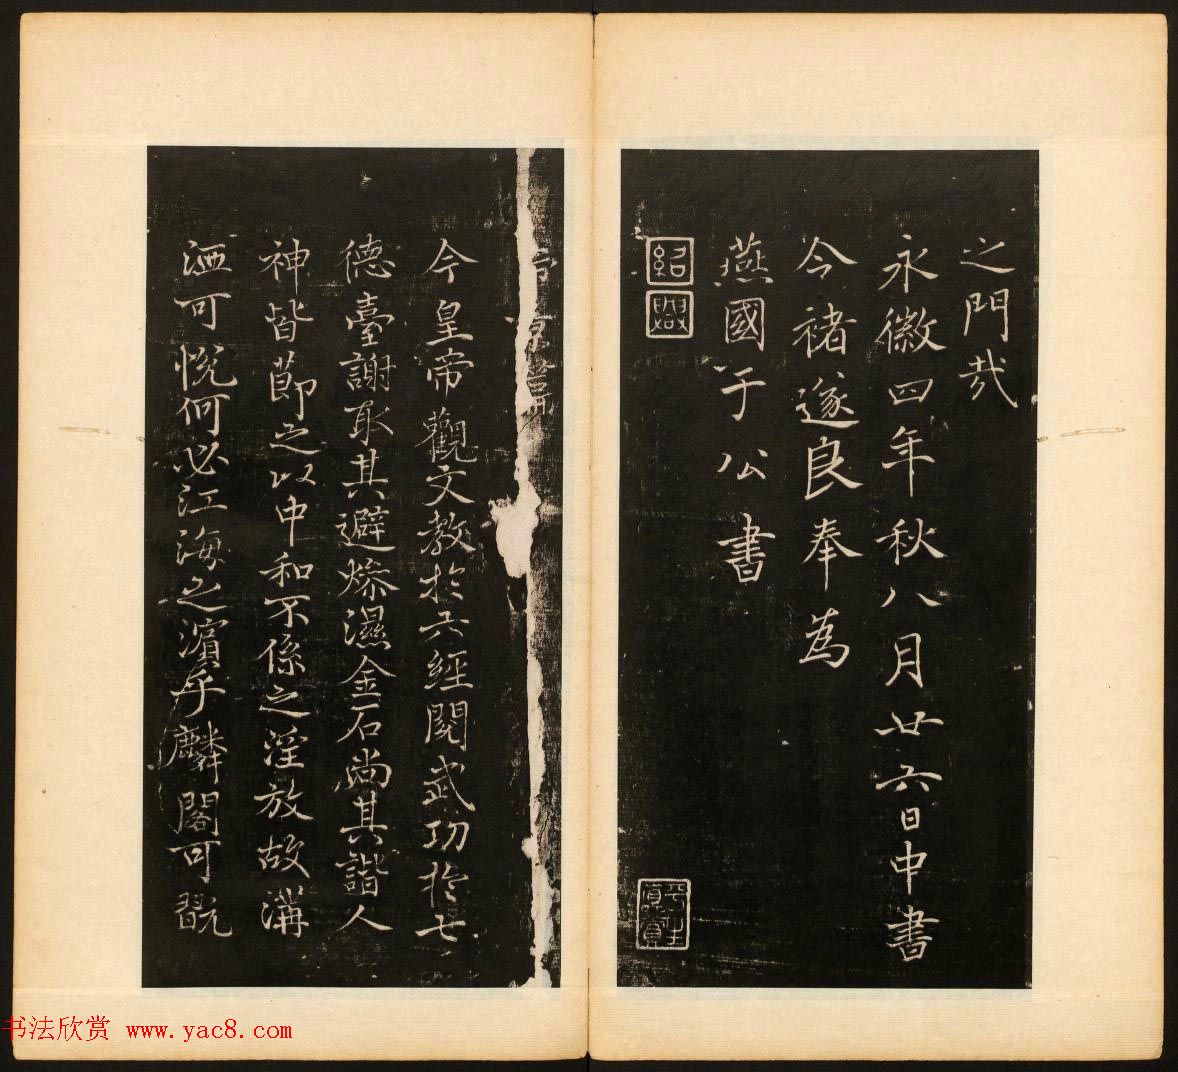 之門哉
永徽四年秋八月廿六日中書
令褚遂良奉為
燕國于公書
紹興
帝京
今皇帝觀文教於六經閱武功於七
德臺謝取其避燥濕金石尚其諧人
神皆節之以中和不係之淫放故溝
洒可悅何必江海之濱乎麟閣可翫
书法欣赏 www.yac8.com